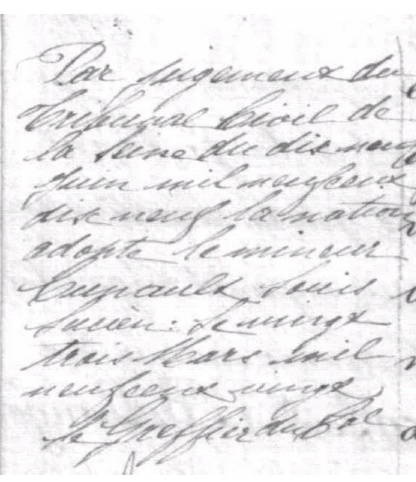 Par jugement du
Tribunal Civil de
la Seine du dix neuf
juin mil neuf cent
dix neuf la nation
adopte le mineur
Louis
Lucien. Le vingt
trois Mars mil
neuf cent vingt
le Greffier du